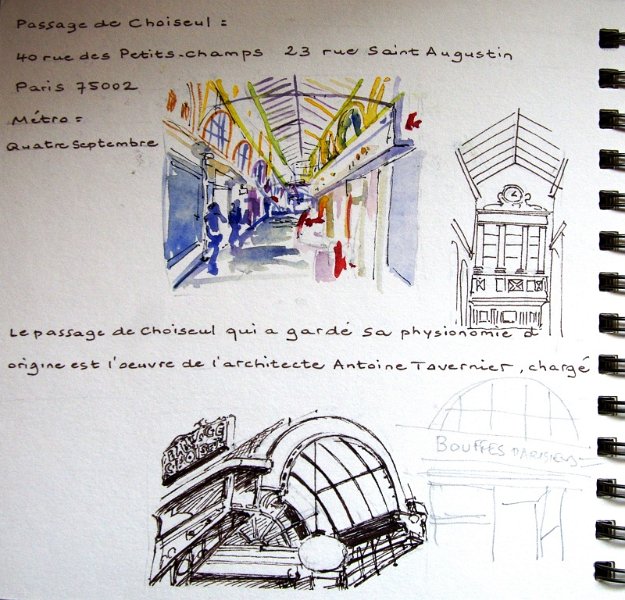 Passage de Choiseul :
40 rue des Petits-champs 23 rue Saint Augustin
Paris 75002
Métro :
Quatre Septembre
Le passage de Choiseul qui a gardé sa physionomie d'
origine est l'oeuvre de l'architecte Antoine Tavernier, chargé
PASSAGE
CHOISEUL
BOUFFES PARISIENS